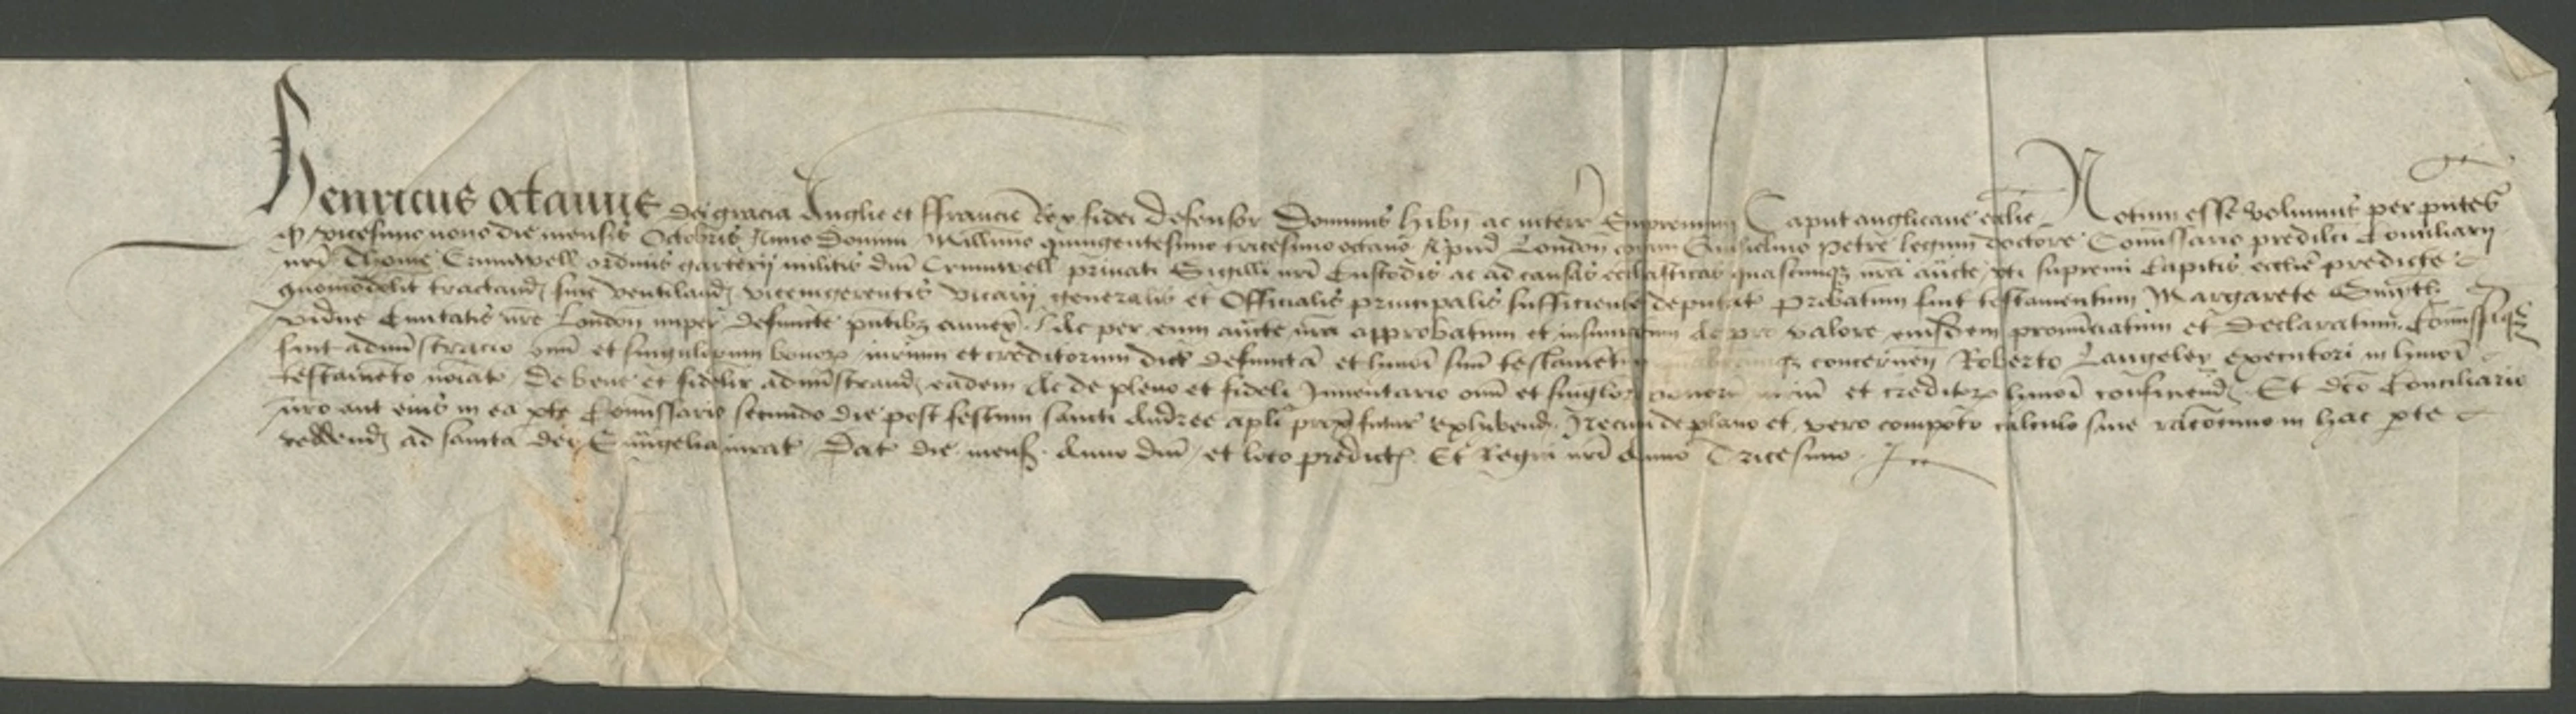 Henricus octavus dei gracia Anglie et ffrancie Rex fidei defensor Dominus hibn̄ ac in terr Supremum Caput anglicane ecclie Notum esse volumus per pn̄tes
qd vicesimo nono die mensis Octobris Anno Domini Millimo quingentesimo tricesimo octavo Apud London coram Guilielmo Petre legum doctore Comissario predilci Consiliarij
nrī Thome Crumwell ordinis garterij militis dnī Crumwell privati Sigilli nrī Custodis ac ad causas ecclāsticas quascunqꝫ nrā aucte uti supremi Capitis ecclie predicte
quomodolit tractand sive ventiland vicemgerentis vicarij generalis et Officialis principalis sufficienter deputat Probatum fuit testamentum Margarete Smyth
vidue Civitatis nre London nuper defuncte pn̄tibꝫ annex Ac per eum aucte nrā approbatum et insinuatum Ac pro valore eiusdem pronunciatum et declaratum Comissaqꝫ
fuit admīstracio omī et singulorum bonorꝫ iurium et creditorum dict defuncte et hmōi suū testamentū concernen Roberto Langeley executori in hmōi
testamēto noīat De bene et fidelir admīstrand eadem Ac de pleno et fideli Inventario omī et singlorꝫ bonorꝫ iuriū et creditorꝫ hmōi conficiend Et dco Consiliario
nr̄o aut eius in ea pte Comissario secundo die post festum sancti Andree apli prox futur exhibend Necnon de plano et vero compoto calculo sive racōcinio in hac pte
reddend ad sancta dei Evangelia iurat Dat die mens Anno dnī et loco predict Et Regni nrī Anno Tricesimo